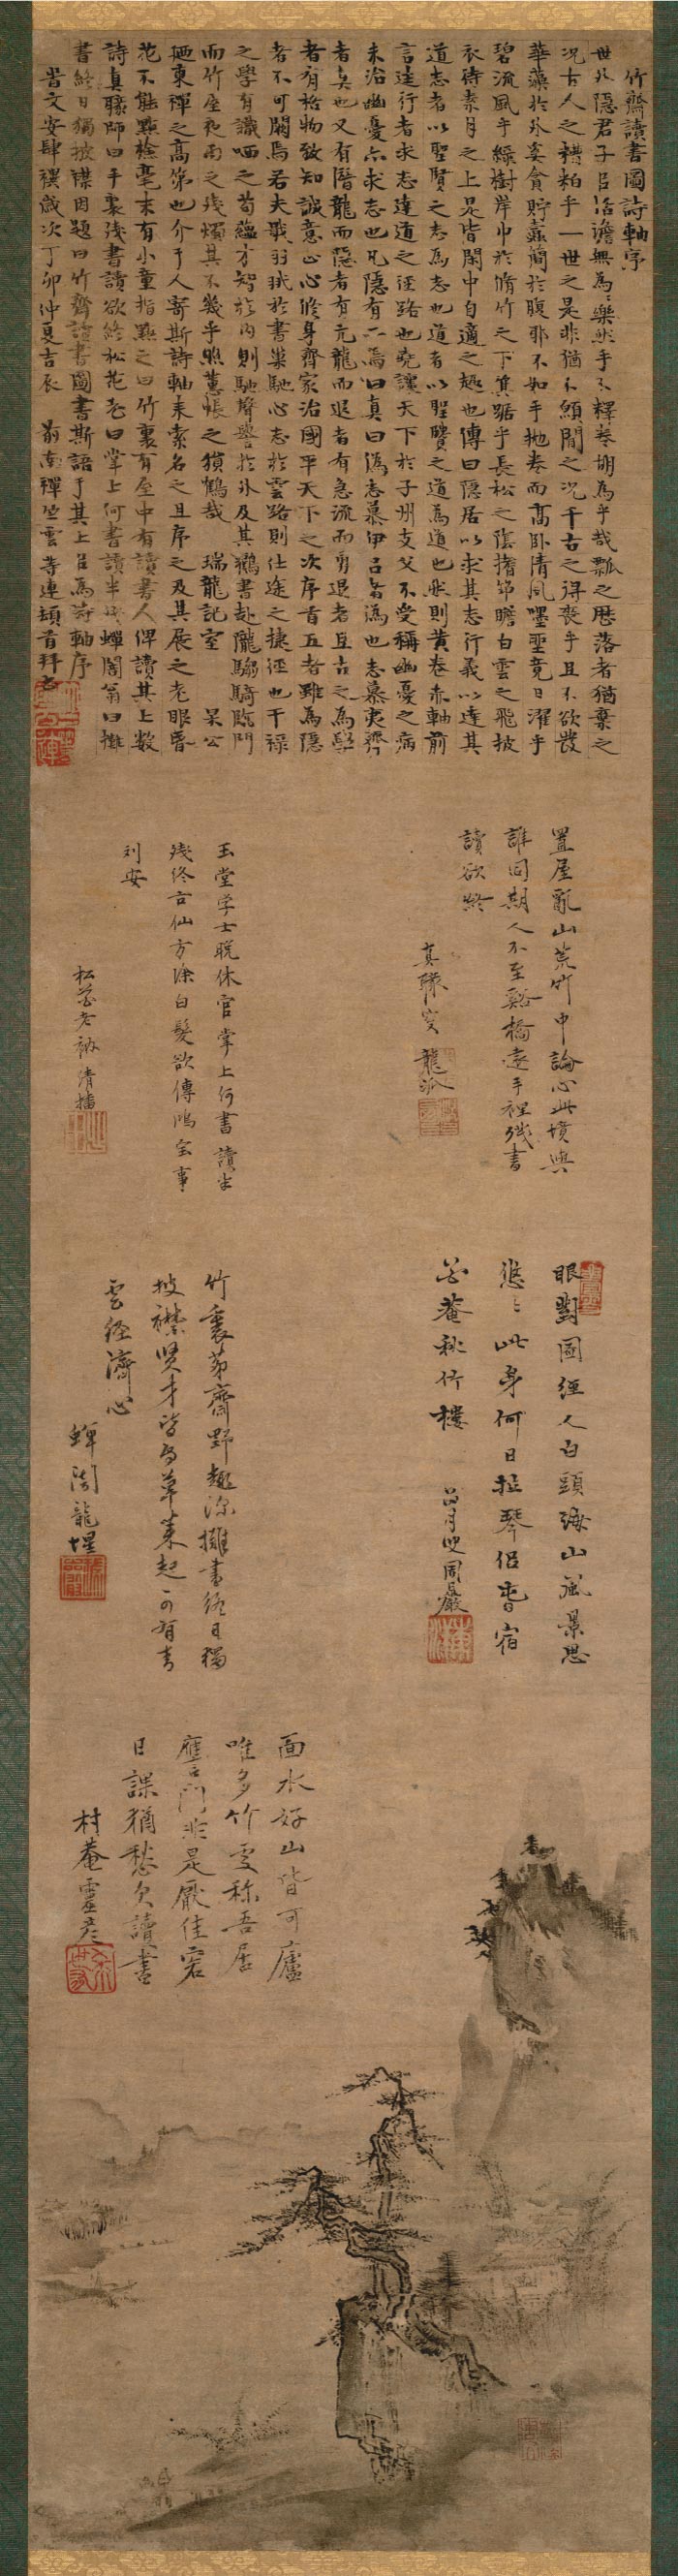 竹齋讀書圖詩軸序
世外隱君子臣活澹無為〻樂然手不釋卷胡為乎哉瓢之歷落者猶棄之
况古人之糟粕乎一世之是非猶不傾聞之况千古之得喪乎且不欲發
華藻於外奚貪貯蠹簡於腹耶不如手抛卷而高臥清風曀聖竟日濯乎
碧流風乎綠樹岸巾於脩竹之下箕踞乎長松之蔭搘笻瞻白雲之飛披
衣待素月之上是皆閑中自適之趣也傳曰隱居以求其志行義以達其
道志者以聖賢之志為志也道者以聖賢之道為道也然則黃卷赤軸前
言往行者求志達道之徑路也堯讓天下於子州支父不受稱幽憂之病
未治幽憂亦求志也凡隱有二焉曰真曰偽志慕伊呂者偽也志慕夷齊
者真也又有潛龍而隱者有亢龍而退者有急流而勇退者且古之為學
者有格物致知誠意正心脩身齊家治國平天下之次序首五者雖為隱
者不可闕焉若夫戢羽翮於書巢馳心志於雲路則仕途之捷徑也干祿
之學有識哂之苟蘊才智於內則馳聲譽於外及其鶴書赴隴騶騎臨門
而竹屋夜雨之殘燭其不幾乎照蕙帳之猿鶴哉 瑞龍記室 杲公
東禪之高第也介于人寄斯詩軸來索名之且序之及其展之老眼昏
花不能點檢毫末有小童指點之曰竹裏有屋中有讀書人俾讀其上數
詩真隱師曰手裏殘書讀欲終松花老曰掌上何書讀半 蟬闇翁曰攤
書終日獨披襟因題曰竹齋讀書圖書斯語于其上以為詩軸序
旹文安肆禩歲次丁卯仲夏吉辰 前南禪竺雲等連頓首拜書
置屋亂山荒竹中論心此境與
誰同期人不至谿橋遠手裡殘書
讀欲終
真隱叟 龍派
玉堂学士晚休官掌上何書讀半
殘終古仙方染白髮欲傳鴻宝事
刘安
松花老衲清播
眼對圖經人白頭海山風景思
悠〻此身何日拉琴侶香宿
茗菴秋竹樓
吕月叟周嚴
竹裏茅齋野趣深攤書終日獨
披襟贤才皆自草萊起可有青
雲经濟心
蟬闇龍惺
面水好山皆可廬
唯多竹雯称吾居
應門非是厭佳客
日課猶愁欠讀書
村菴靈彦